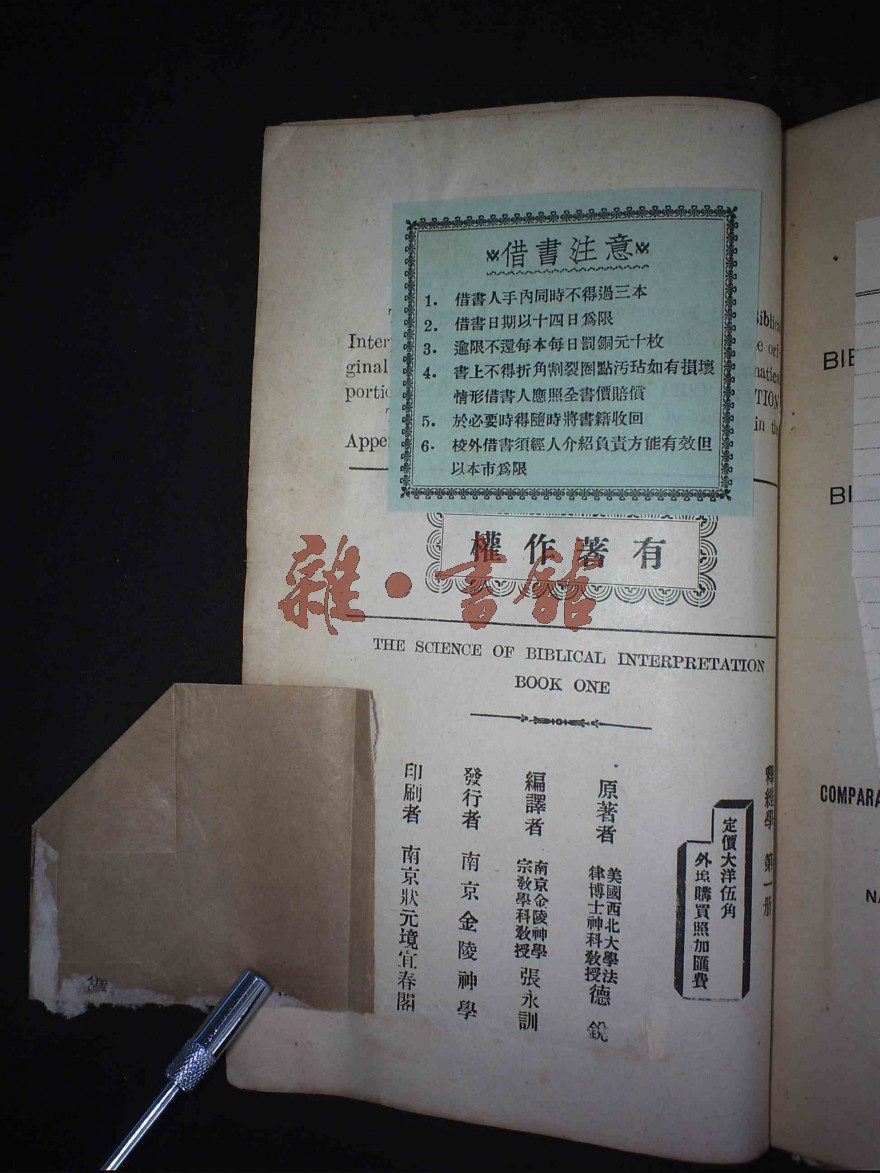 借書注意
1. 借書人手內同時不得過三本
2. 借書日期以十四日爲限
3. 逾限不還每本每日罰銅元十枚
4. 書上不得折角割裂圈點污玷如有損壞
情形借書人應照全書價賠償
5. 於必要時得隨時將書籍收回
6. 校外借書須經人介紹負責方能有效但
以本市爲限
Inter
ginal
portio
Appe
Biblica
e ori-
matica
TION
in the
權作著有
雜·書館
THE SCIENCE OF BIBLICAL INTERPRETATION
BOOK ONE
釋經學 第一册
定價大洋伍角
外埠購買照加匯費
原著者 美國西北大學法
律博士神科教授 德銳
編譯者 南京金陵神學
宗教學科教授 張永訓
發行者 南京金陵神學
印刷者 南京狀元境宜春閣
BIB
BI
COMPARA
NA